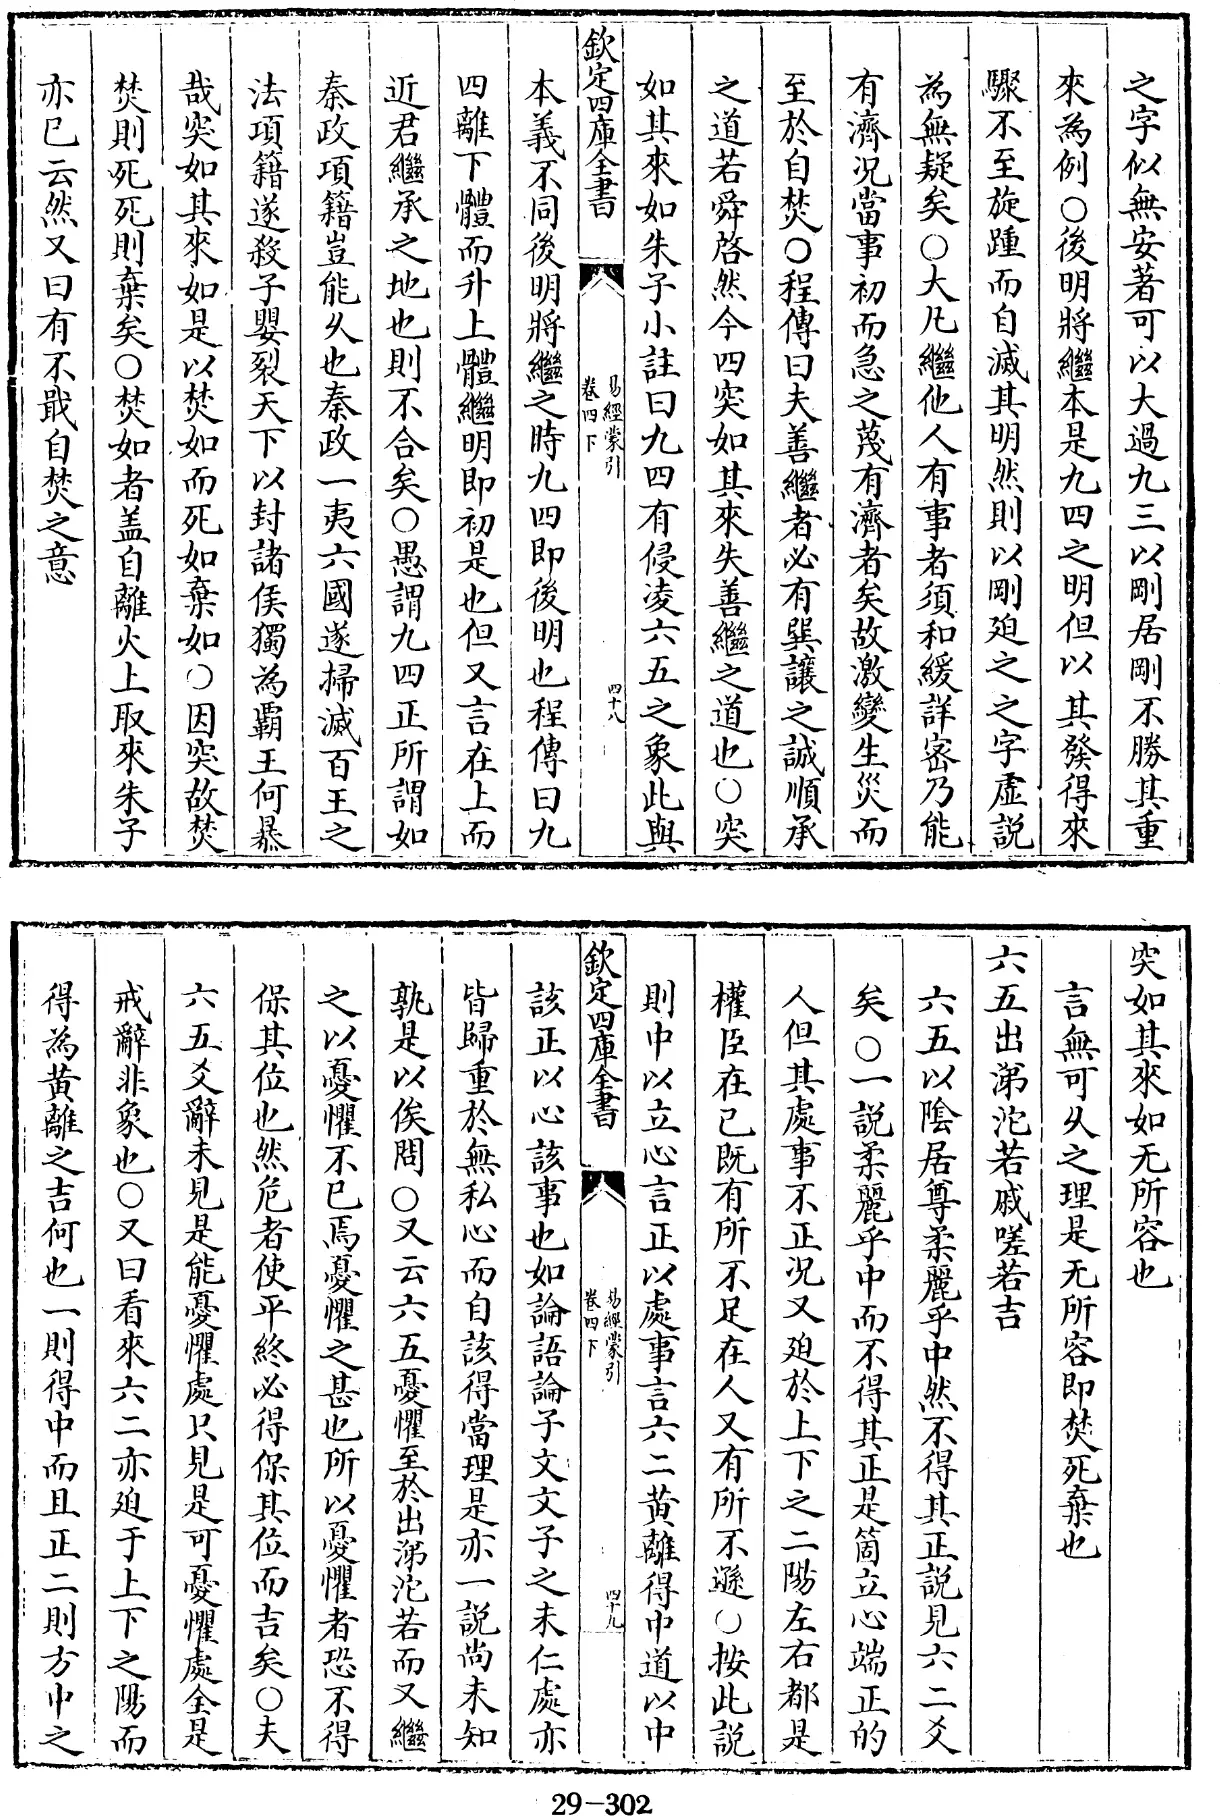 之字似無安著可以大過九三以剛居剛不勝其重
來為例○後明將繼本是九四之明但以其發得來
驟不至旋踵而自滅其明然則以剛廹之之字虛説
為無疑矣○大凡繼他人有事者須和緩詳宻乃能
有濟况當事初而急之蔑有濟者矣故激變生災而
至於自焚○程傳曰夫善繼者必有巽讓之誠順承
之道若舜啓然今四突如其來失善繼之道也○突
如其來如朱子小註曰九四有侵凌六五之象此與
欽定四庫全書
易經蒙引
卷四下
四十八
本義不同後明將繼之時九四即後明也程傳曰九
四離下體而升上體繼明即初是也但又言在上而
近君繼承之地也則不合矣○愚謂九四正所謂如
秦政項籍豈能乆也秦政一夷六國遂掃滅百王之
法項籍遂殺子嬰裂天下以封諸侯獨為霸王何暴
哉突如其來如是以焚如而死如棄如○因突故焚
焚則死死則棄矣○焚如者盖自離火上取來朱子
亦已云然又曰有不戢自焚之意
突如其來如无所容也
言無可乆之理是无所容即焚死棄也
六五出涕沱若戚嗟若吉
六五以陰居尊柔麗乎中然不得其正説見六二爻
矣○一説柔麗乎中而不得其正是箇立心端正的
人但其處事不正况又廹於上下之二陽左右都是
權臣在已既有所不足在人又有所不遜○按此説
則中以立心言正以處事言六二黄離得中道以中
欽定四庫全書
易經蒙引
卷四下
四十九
該正以心該事也如論語論子文文子之未仁處亦
皆歸重於無私心而自該得當理是亦一説尚未知
孰是以俟問○又云六五憂懼至於出涕沱若而又繼
之以憂懼不已焉憂懼之甚也所以憂懼者恐不得
保其位也然危者使平終必得保其位而吉矣○夫
六五爻辭未見是能憂懼處只見是可憂懼處全是
戒辭非象也○又曰看來六二亦廹于上下之陽而
得為黄離之吉何也一則得中而且正二則方中之
29-302